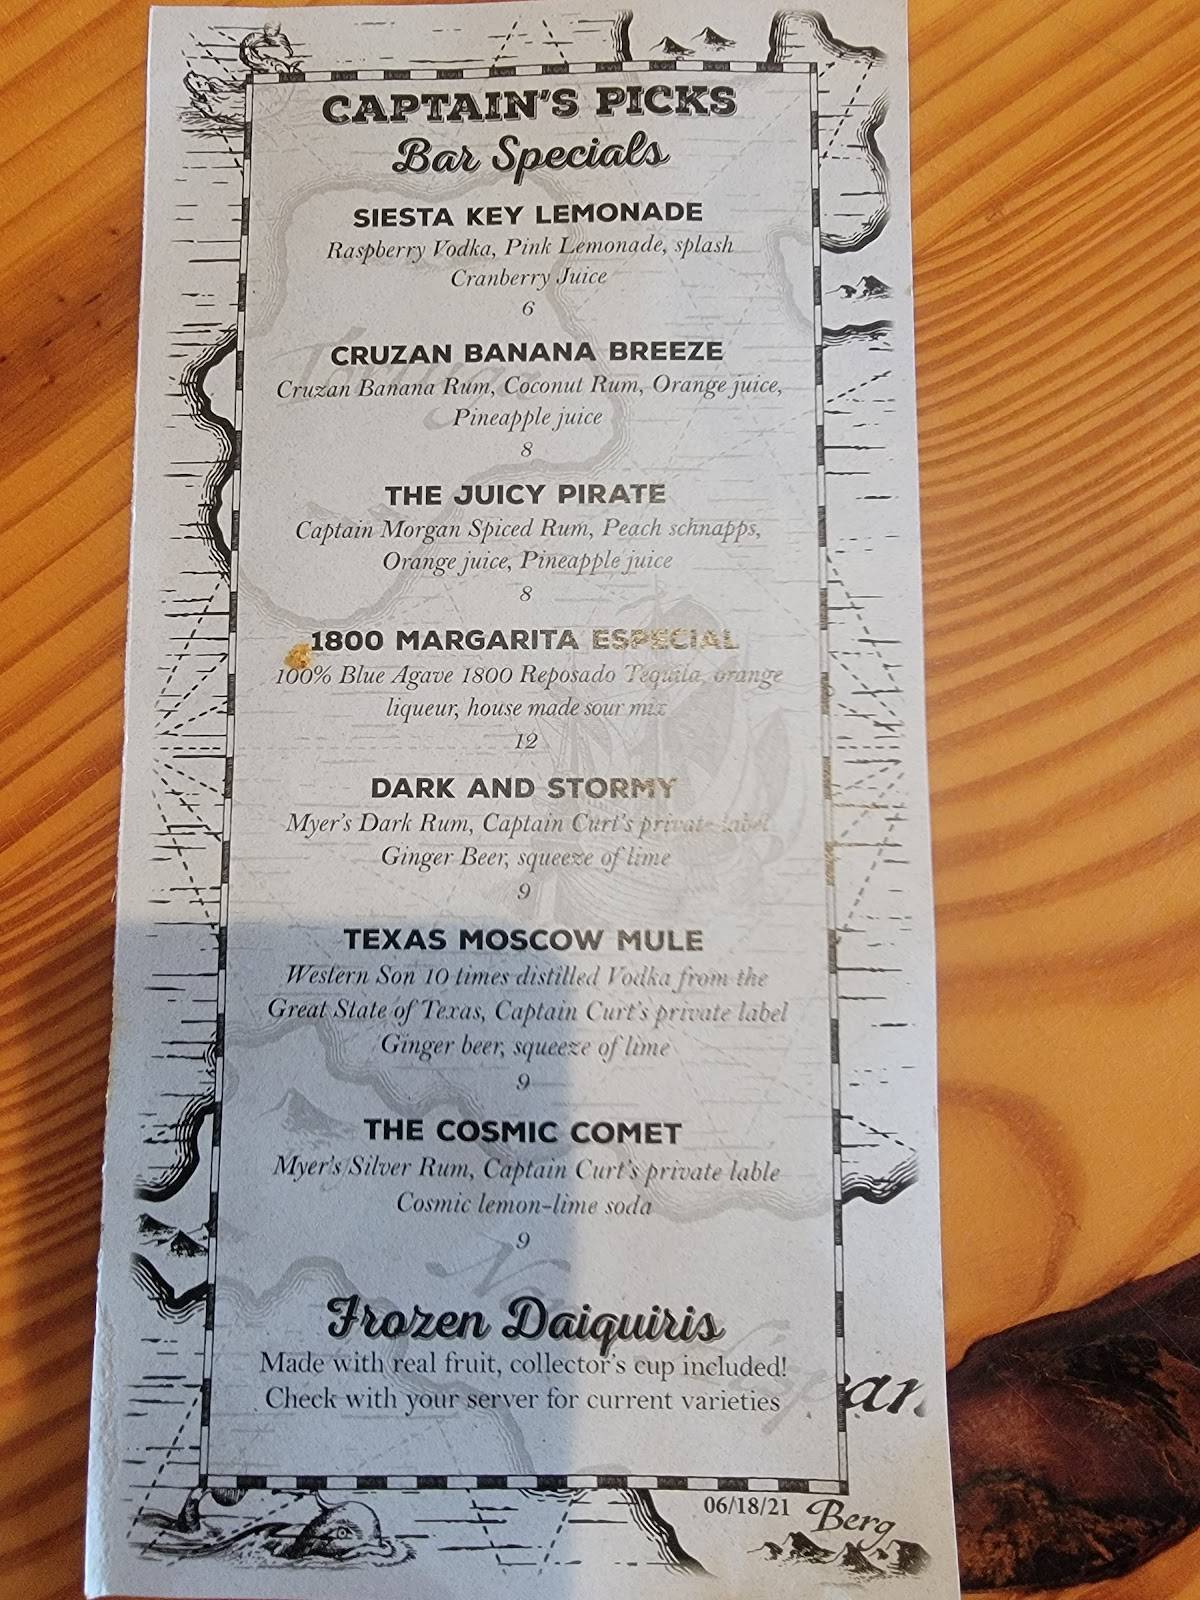 CAPTAIN'S PICKS
Bar Specials
SIESTA KEY LEMONADE
Raspberry Vodka, Pink Lemonade, splash
Cranberry Juice
6
CRUZAN BANANA BREEZE
Cruzan Banana Rum, Coconut Rum, Orange juice,
Pineapple juice
8
THE JUICY PIRATE
Captain Morgan Spiced Rum, Peach schnapps,
Orange juice, Pineapple juice
8
1800 MARGARITA ESPECIAL
100% Blue Agave 1800 Reposado Tequila, orange
liqueur, house made sour mix
12
DARK AND STORMY
Myer's Dark Rum, Captain Curt's private label
Ginger Beer, squeeze of lime
9
TEXAS MOSCOW MULE
Western Son 10 times distilled Vodka from the
Great State of Texas, Captain Curt's private label
Ginger beer, squeeze of lime
9
THE COSMIC COMET
Myer's Silver Rum, Captain Curt's private lable
Cosmic lemon-lime soda
9
Frozen Daiquiris
Made with real fruit, collector's cup included!
Check with your server for current varieties
06/18/21 Berg